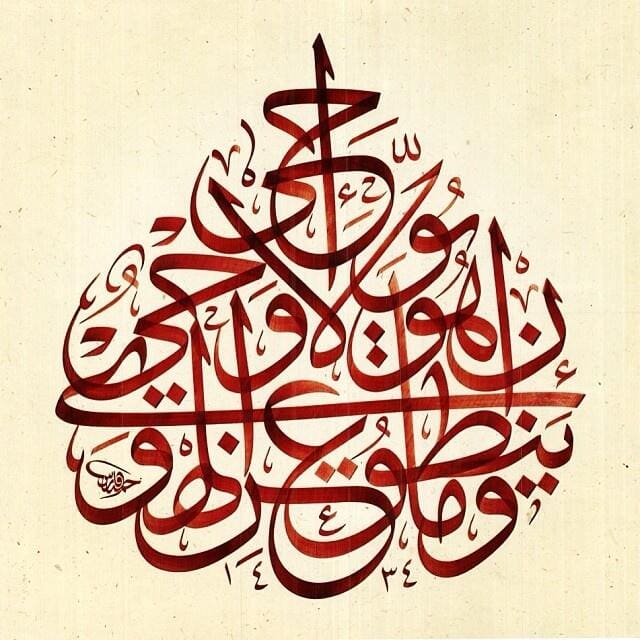 وَمَا يَنْطِقُ عَنِ الْهَوَىٰ
إِنْ هُوَ إِلَّا وَحْيٌ يُوحَىٰ
١٤٣٤